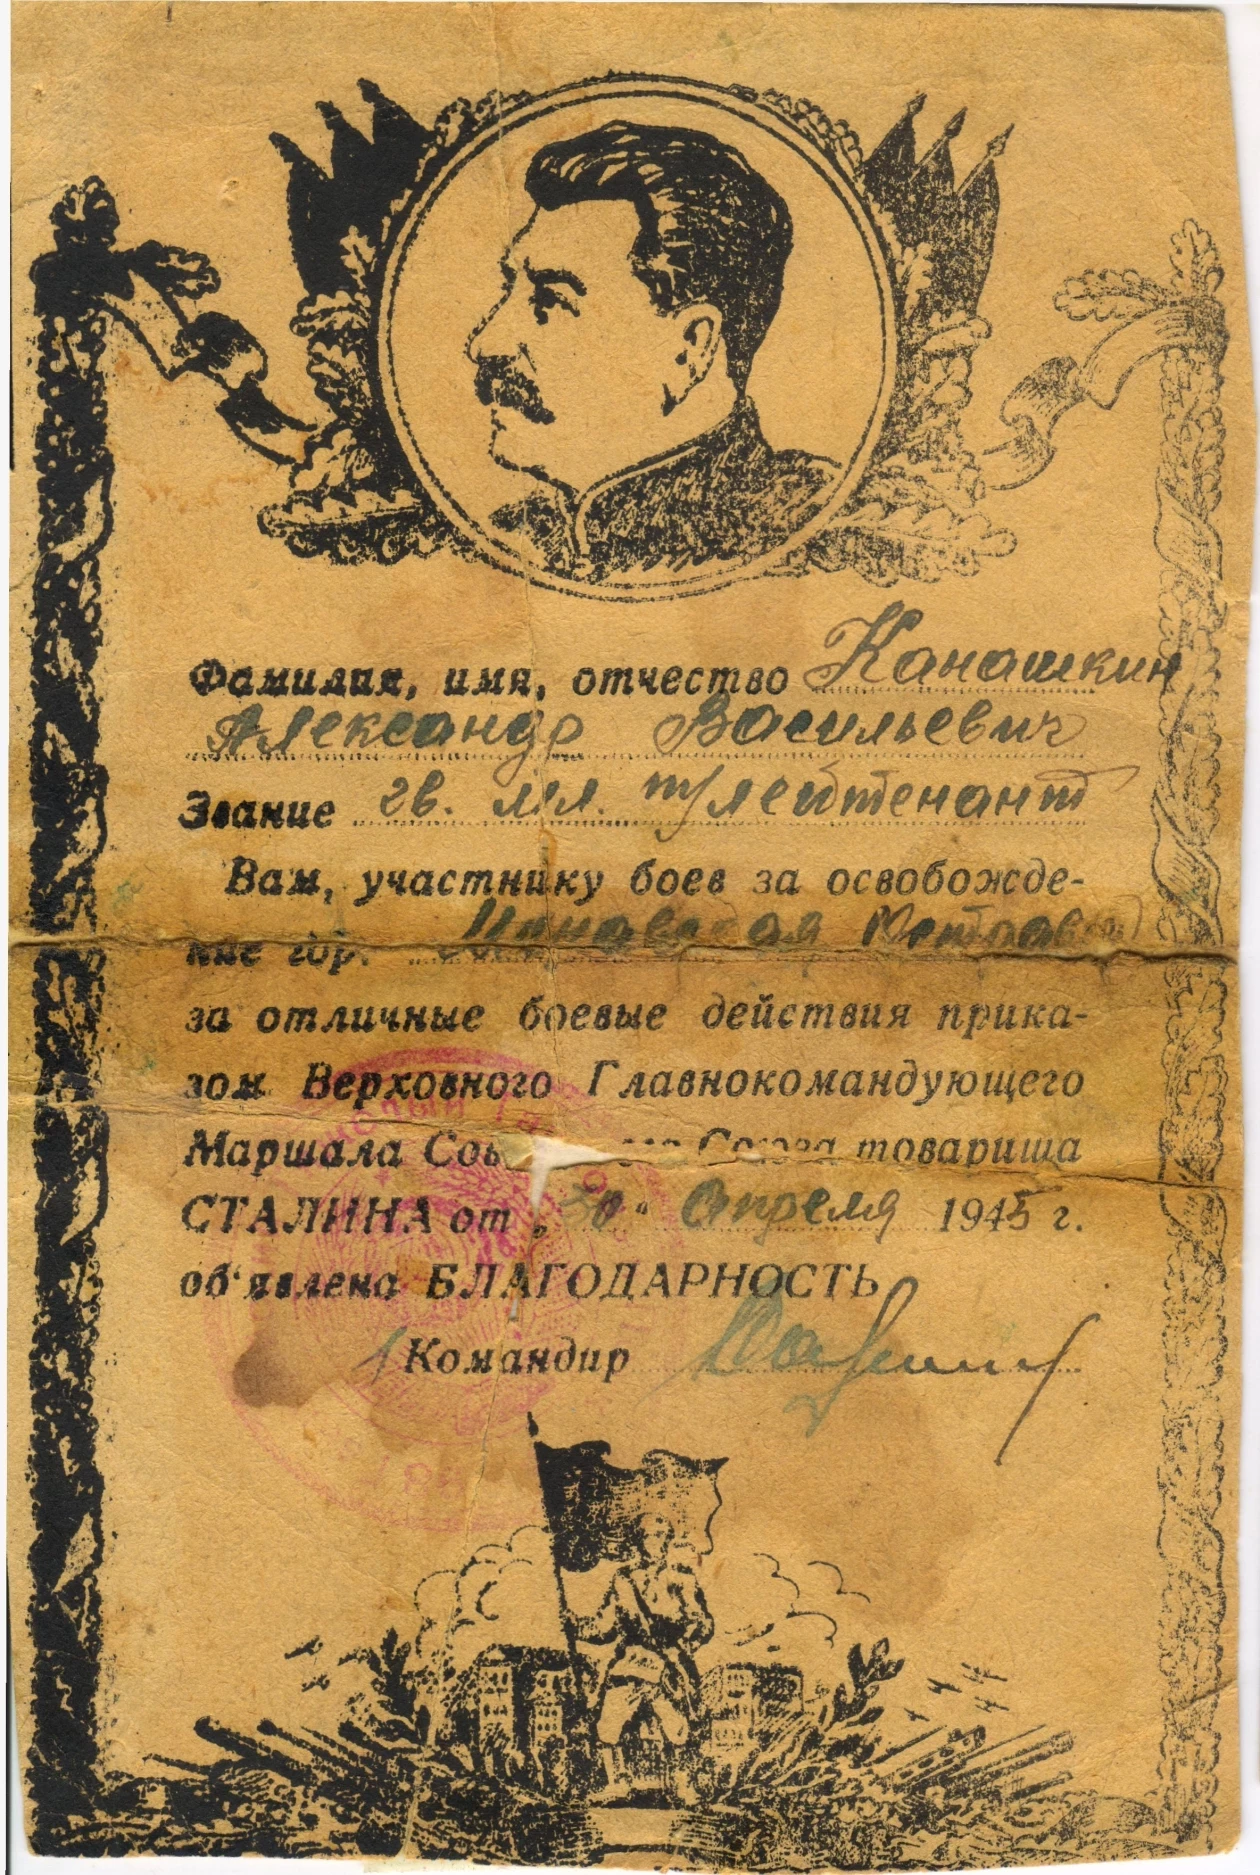 Фамилия, имя, отчество Канашкин
Александр Васильевич
Звание гв. мл. т/лейтенант
Вам, участнику боев за освобожде-
ние гор. Моравская Острава
за отличные боевые действия прика-
зом Верховного Главнокомандующего
Маршала Союза товарища
СТАЛИНА от „30“ апреля 1945 г.
об‘явлена БЛАГОДАРНОСТЬ
Командир